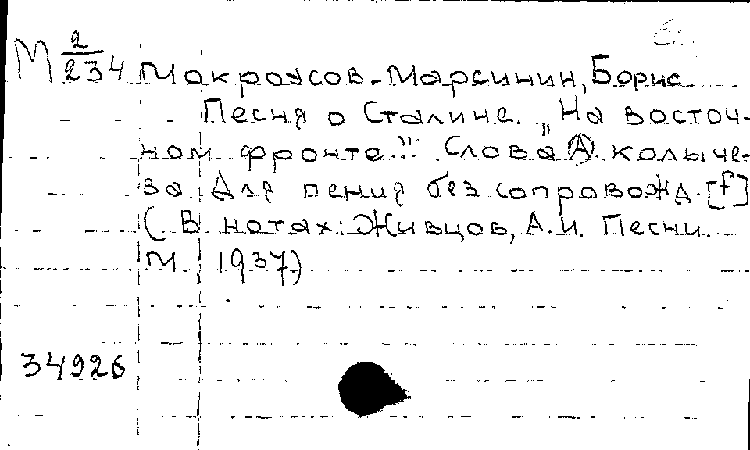 М 2/234 Мокроусов-Марсинин, Борис
Песня о Сталине. „На восточ-
ном фронте..." Слова А. колыче-
ва Для пения без сопровожд. [f]
(В нотах: Живцов, А.И. Песни.
М. 1937.)
34926